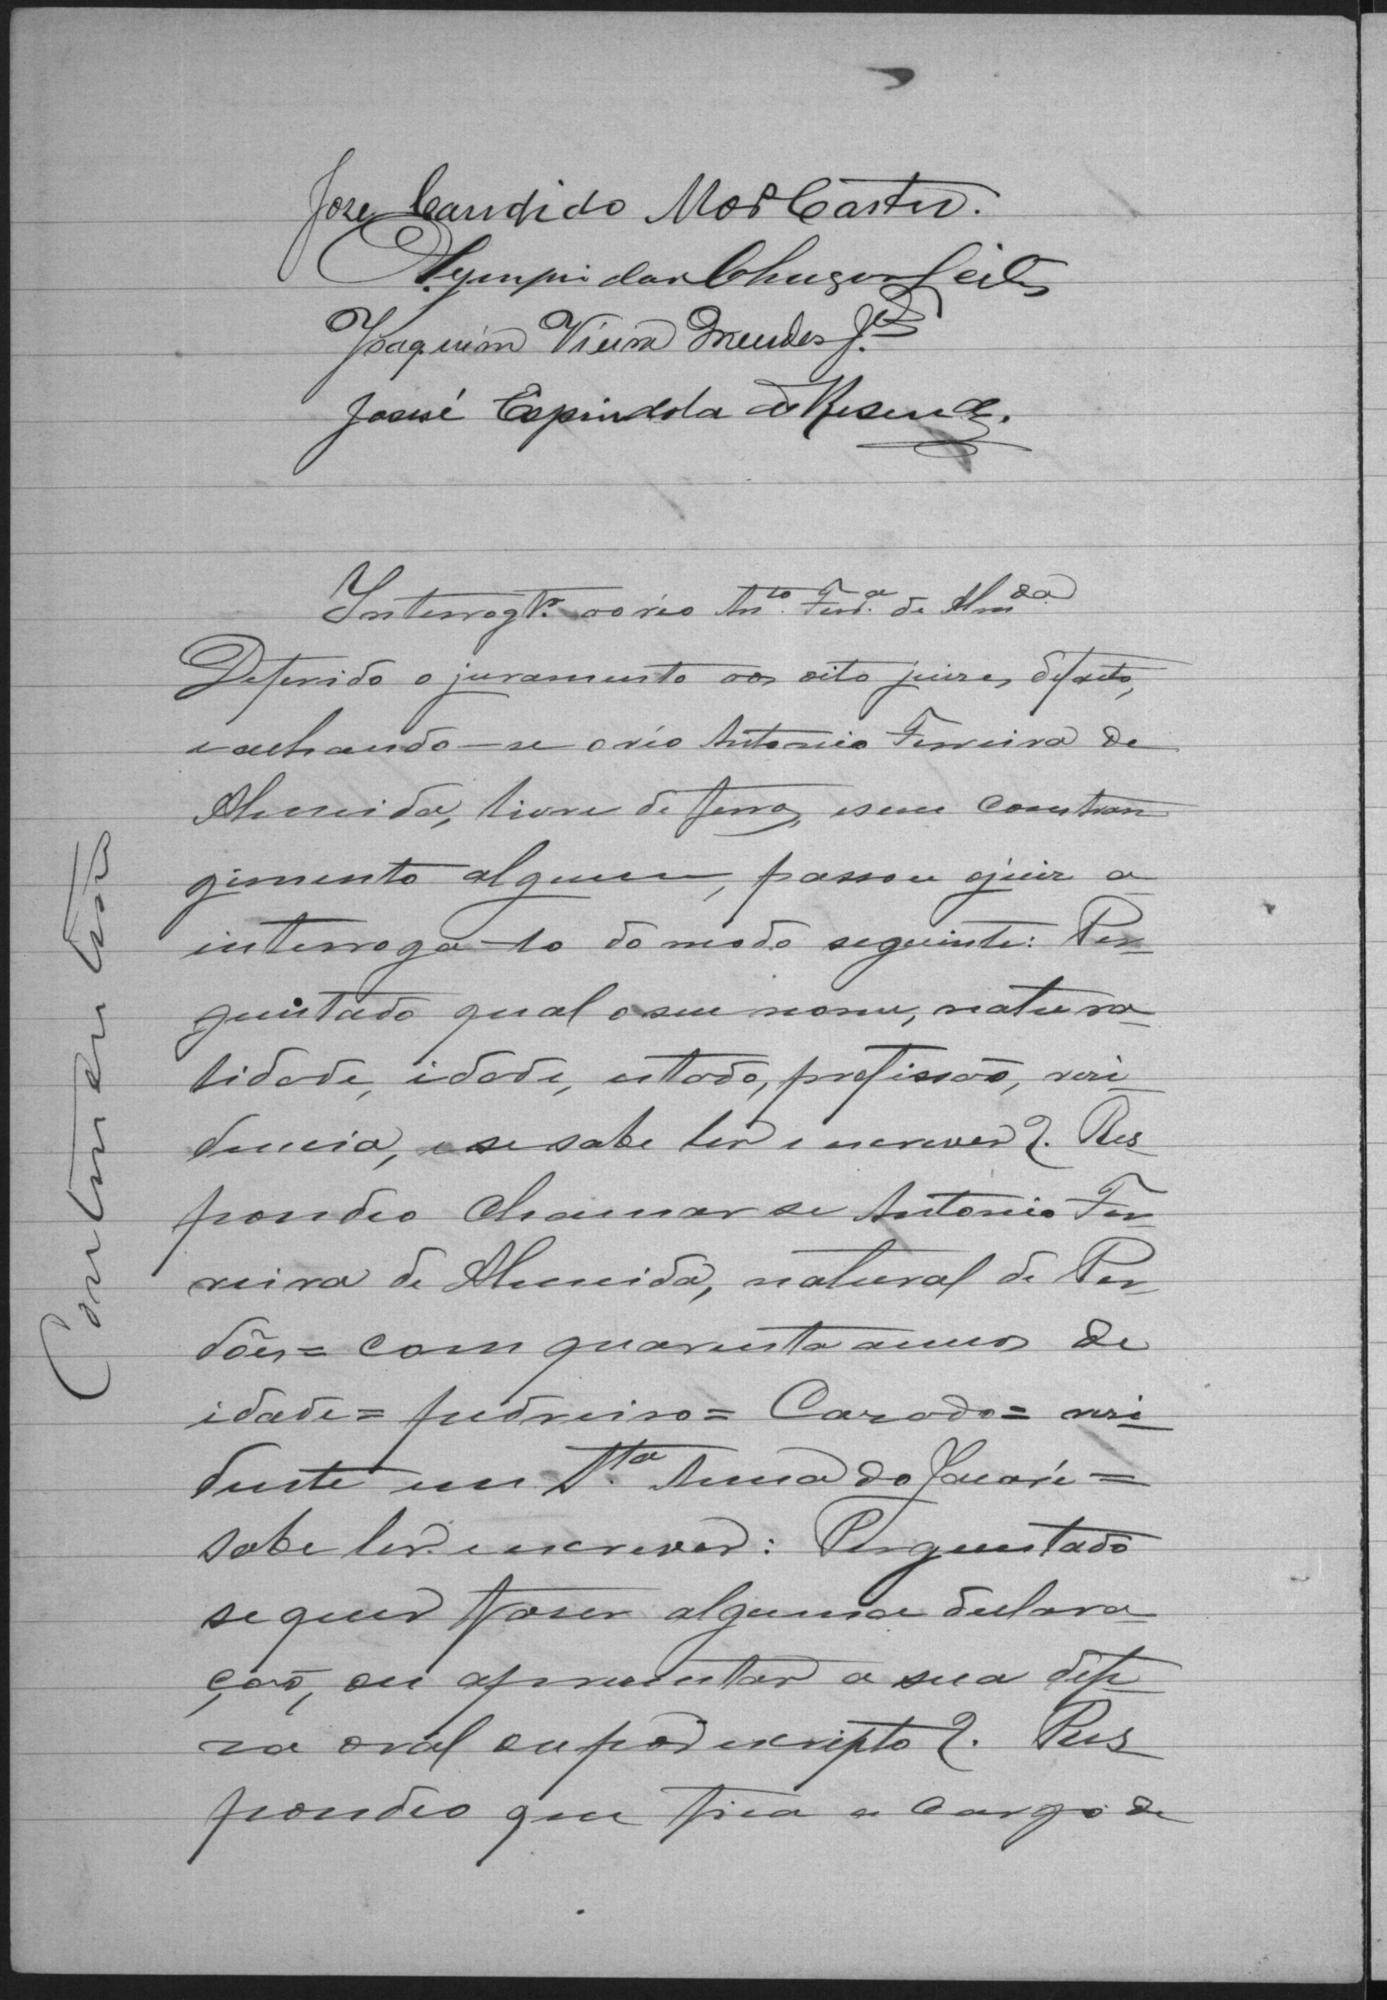 Jose Candido Mor Castro.
Olympi das Chagas Leite
Joaquim Vieira Mendes Jor
Josué Espindola de Resende.
Interrogtro. ao réo Anto. Ferra. de Almda.
Deferido o juramento aos oito juizes de facto,
e achando-se o réo Antonio Ferreira de
Almeida, livre de ferros, e sem constran
gimento algum, passou o juiz a
interroga-lo do modo seguinte: Per-
guntado qual o seu nome, natura-
lidade, idade, estado, profissaõ, resi-
dencia, e se sabe ler e escrever?. Res
pondeo chamar se Antonio Fer-
reira de Almeida, natural de Per-
dões= com quarenta annos de
idade= pedreiro= Casado= resi-
dente em Sta. Anna do Jacaré=
sabe ler e escrever: Perguntado
se quer faser alguma declara-
çaõ, ou apresentar a sua defe-
za oral ou por escripto?. Res-
pondeo que fica a cargo de